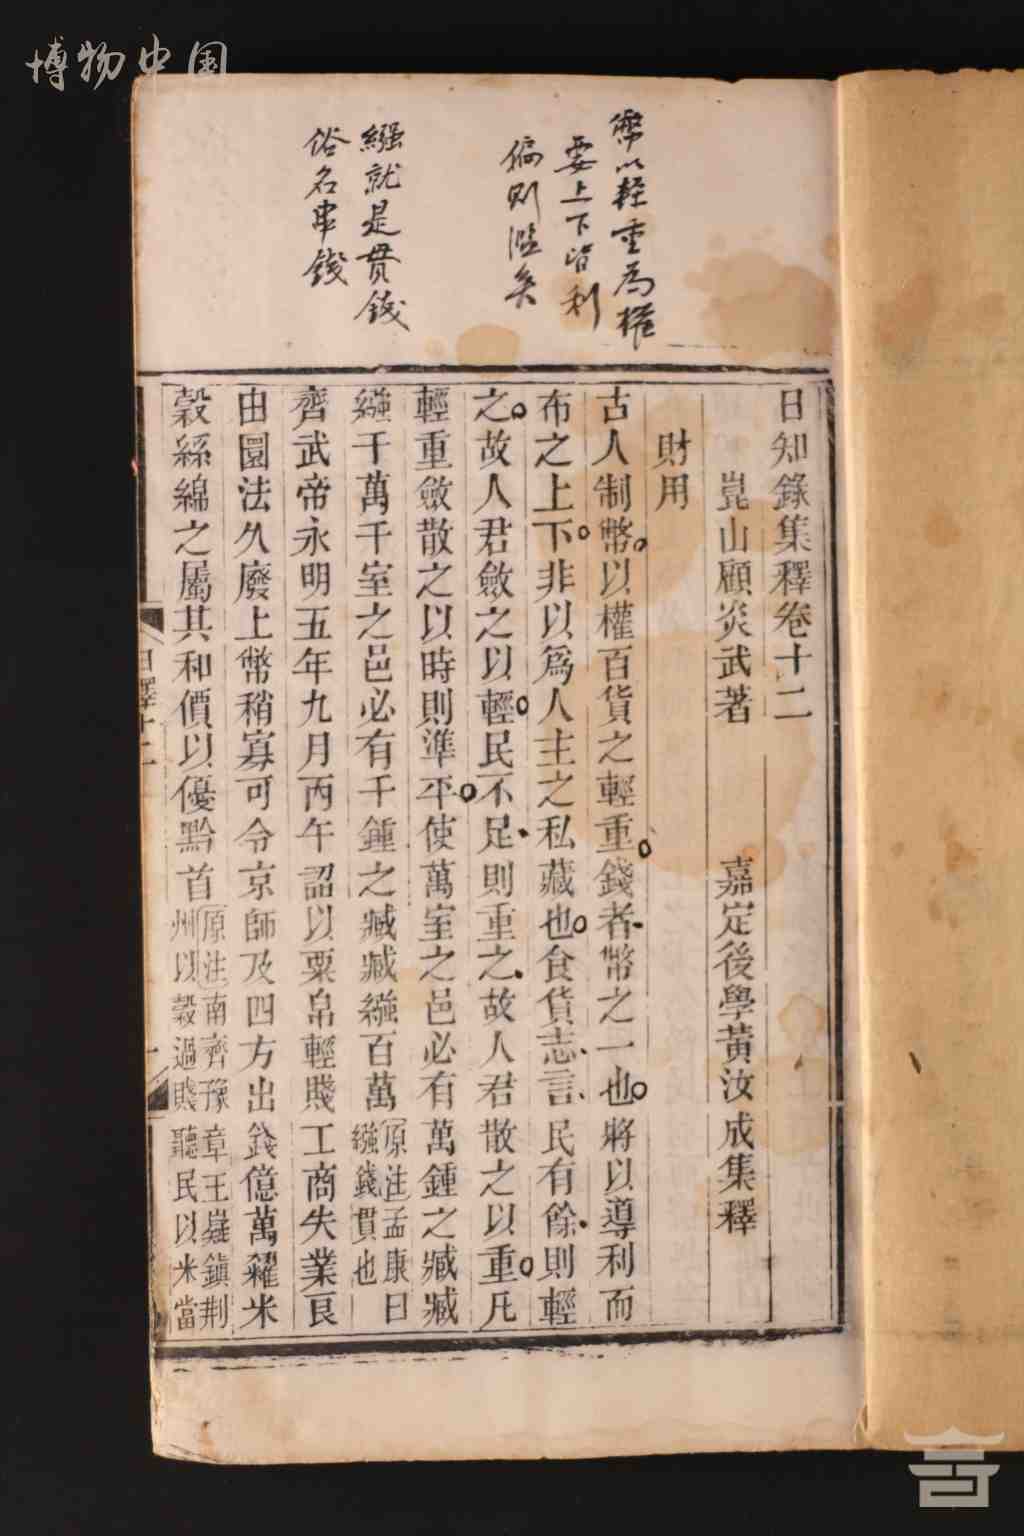 博物中国
幣以輕重為權
要上下皆利
偏則濫矣
繦就是貫錢
俗名串錢
日知錄集釋卷十二
崑山顧炎武著 嘉定後學黃汝成集釋
財用
古人制幣以權百貨之輕重錢者幣之一也將以導利而
布之上下非以爲人主之私藏也食貨志言民有餘則輕
之故人君斂之以輕民不足則重之故人君散之以重凡
輕重斂散之以時則準平使萬室之邑必有萬鍾之臧臧
繦千萬千室之邑必有千鍾之臧臧繦百萬原注孟康曰繦錢貫也
齊武帝永明五年九月丙午詔以粟帛輕賤工商失業良
由圜法久廢上幣稍寡可令京師及四方出錢億萬糴米
穀絲綿之屬其和價以優黔首原注南齊豫章王嶷鎮荆州以穀過賤聽民以米當
日釋十二
一